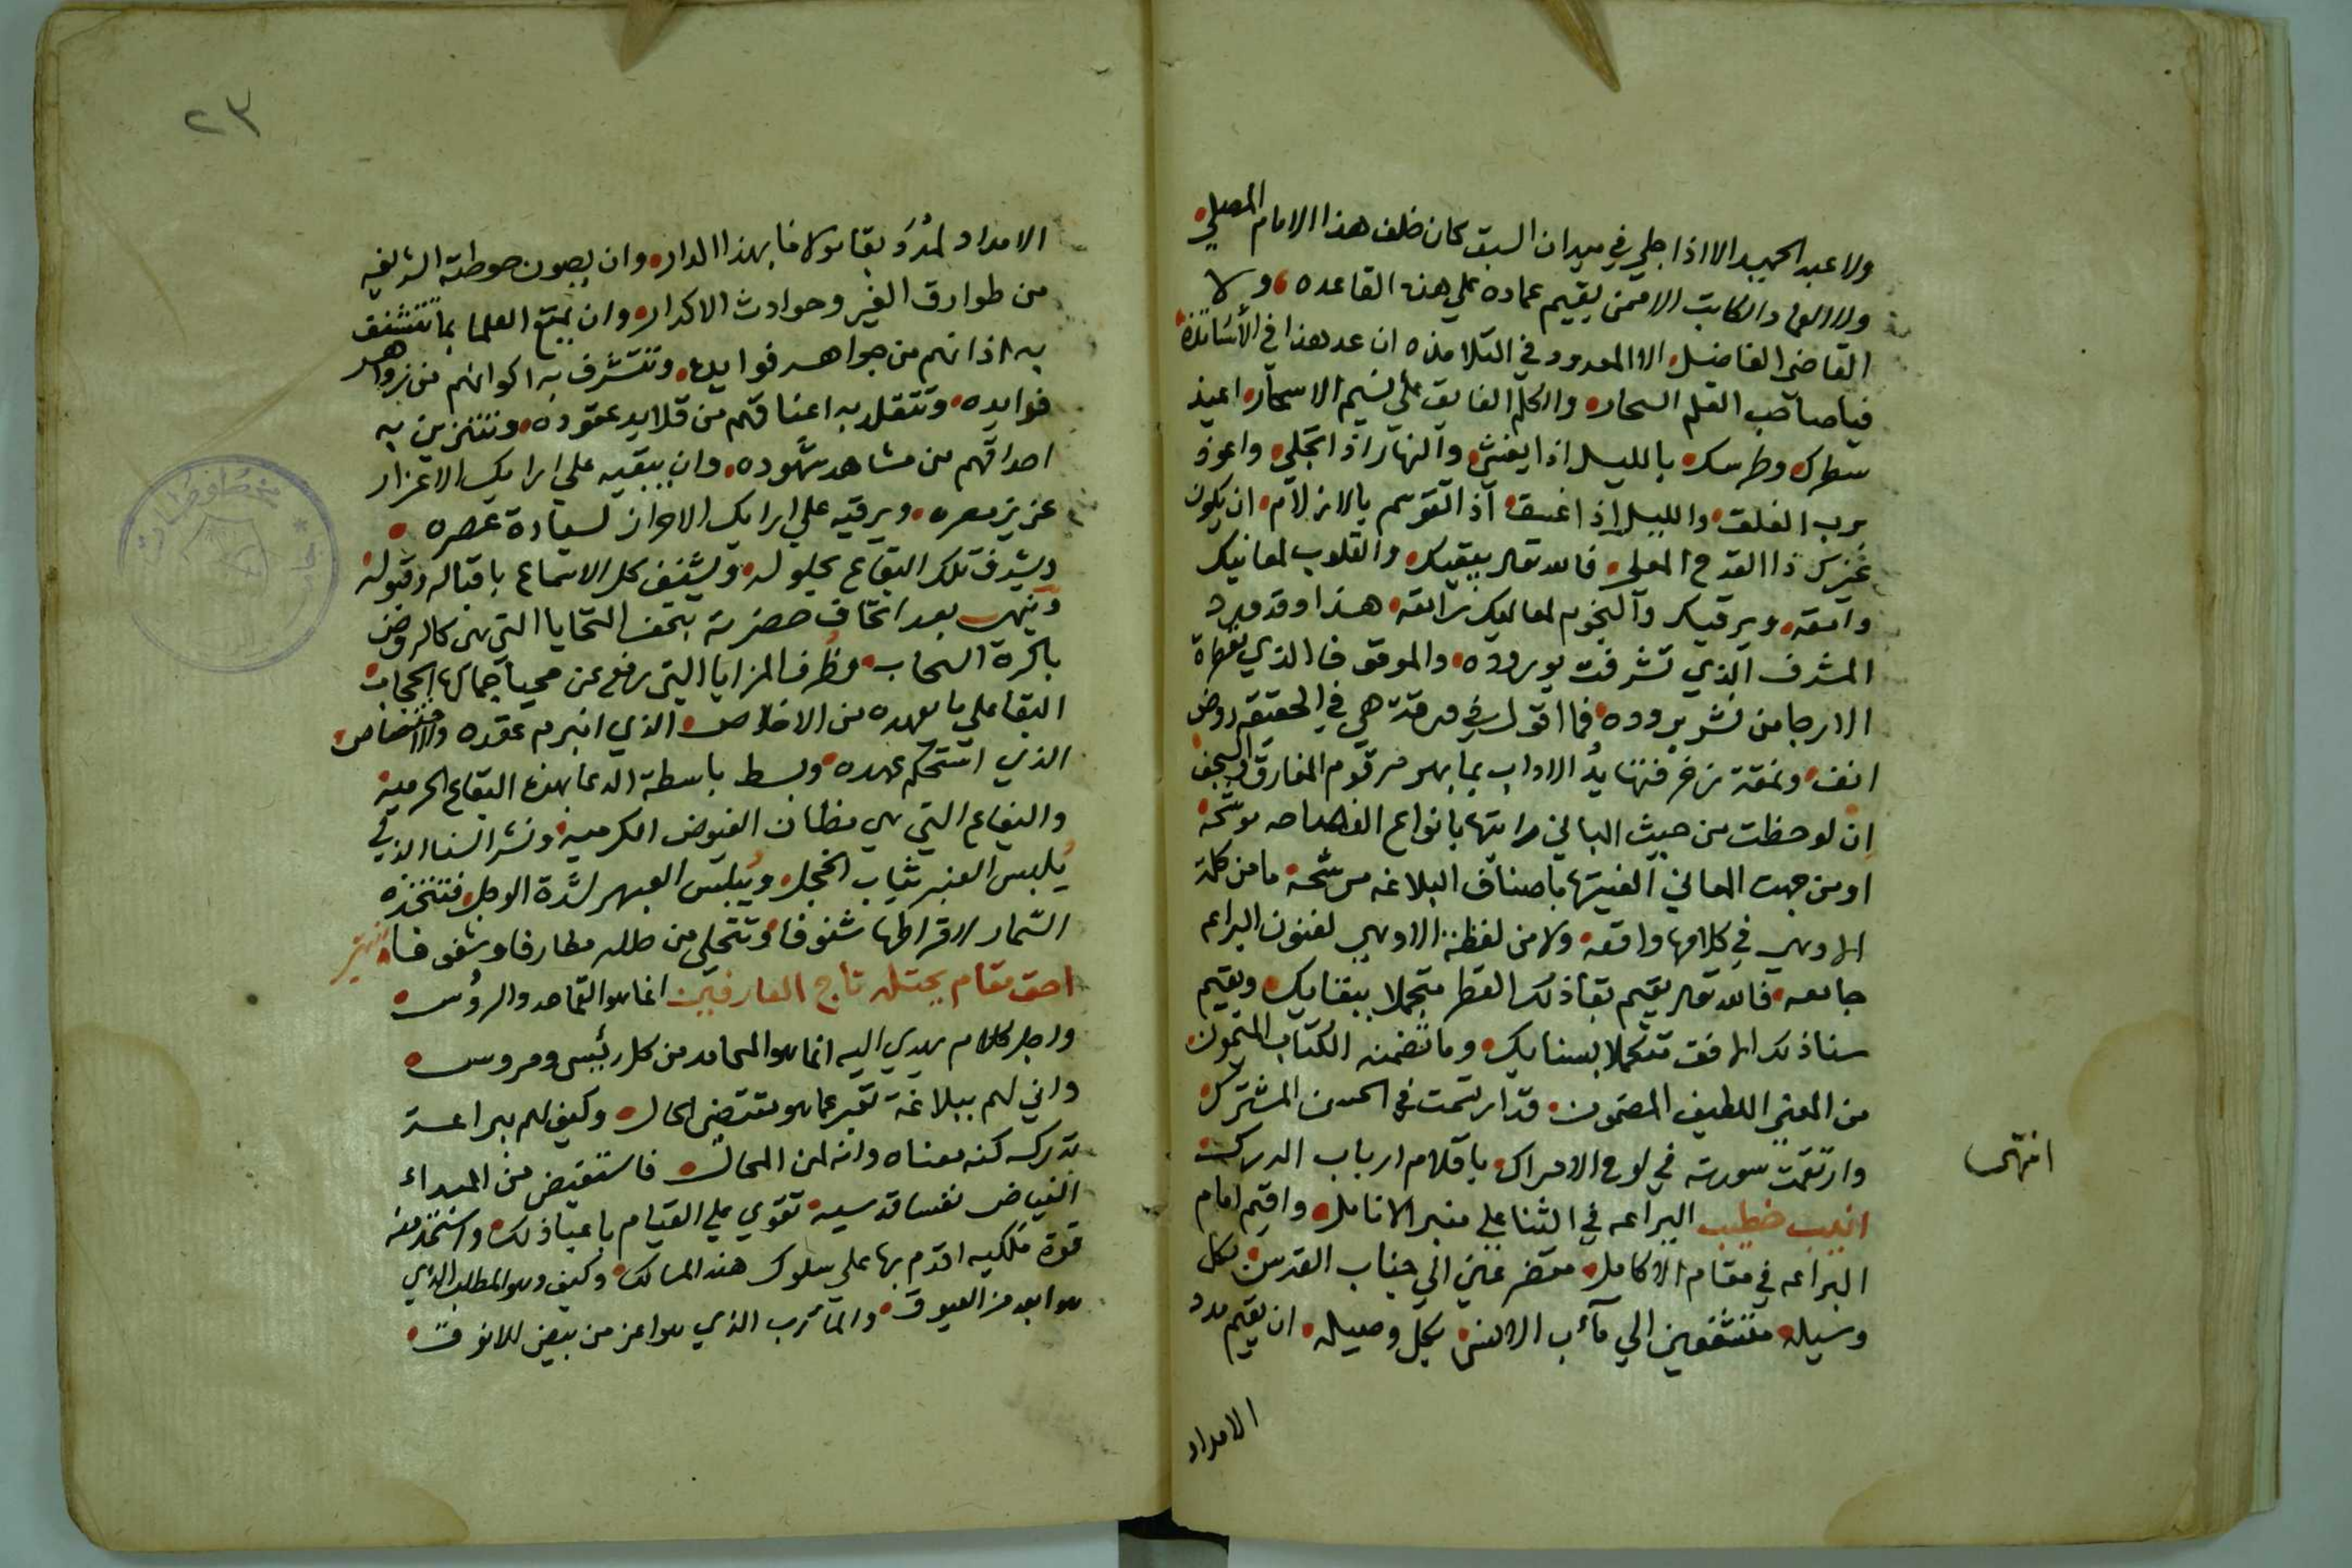 ولا عبد الحميد الا اذا جلي في ميدان السبق كان خلف هذا الامام المصلي
ولا العماد الكاتب الا ممن يقيم عماده علي هذه القاعده ولا
القاضي الفاضل الا المعدود في التلامذه ان عد هذا في الأساتذة
فيا صاحب القلم السحار والكلم الفايق علي نسيم الاسحار اعيذ
سطرك وطرسك بالليل اذا يغشي والنهار اذا تجلي واعوذ
برب الفلق والليل اذا غسق اذا اتقوسم بالازلام ان يكون
غيرك ذا القدح المعلي فالله تعالى يبقيك والقلوب لمعانيك
وامقه ويرقيك والنجوم لمعاليك رامقه هذا وقد ورد
المشرف الذي تشرفت بوروده والموقوفا الذي تعطرت
الارجا من نشر بروده فما اقول في ورقة هي في الحقيقه روض
انف ونمقة زخرفتها يد الاداب بما بهر مرقوم المفارق والسجف
ان لوحظت من حيث المباني رايتها بانواع الفصاحه موشحة
او من جهت المعاني الفيتها باصناف البلاغه مرشحة ما من كلمة
الا وهي في كلامها واقعه ولا من لفظة الا وهي لفنون البراعه
جامعه فالله تعالى يقيم بقا ذلك القطر متجملا ببقايك ويقيم
سنا ذلك الافق متكملا بسنايك وما تضمنه الكتاب المتمون
من المعني اللطيف المصمون قد ارتسمت في الحسن المشترك
وارتقمت سورته في لوح الادراك باقلام ارباب الدرك
انتهى
انتدب خطيب اليراعه في الثنا علي منبر الانامل واقيم امام
البراعه في مقام الاكامل متضرعين الي جناب القدس بكل
وسيله متشفعين الي مآب الانس بكل وصيله ان يقيم مدد
الامداد
٢٣
الامداد لمدد بقا مولانا بهذا الدار وان يصون حوطته الشريفه
من طوارق الغير وحوادث الاكدار وان يمتع العلما بما تتشنف
به اذانهم من جواهر فوايده وتتشرف به اكوانهم من زواهر
فوايده وتتقلد به اعناقهم من قلايد عقوده وتتزين به
احداقهم من مشاهد شهوده وان يبقيه علي ارايك الاعزاز
عزيز مصره ويرقيه علي ارايك الاحراز لسيادة عصره
ويشرف تلك البقاع بحلوله ويشنف كل الاسماع باقباله وقبوله
وينهى بعد اتحاف حضرته بتحف التحايا التي هي كالروض
باكره السحاب وظرف المزايا التي رفع عن محيا جمالها الحجاب
البقا علي ما يعهده من الاخلاص الذي انبرم عقده والاختصاص
الذي استحكم عهده وبسط باسطة الدعا بهذه البقاع الحرميه
والبقاع التي هي مظان الفيوض الكرميه ونشر الثنا الذي
يُلبس العنبر ثياب الخجل ويُبلس العبهر لشدة الوجل فتتخذه
السمار لاقراطها شنوفا وتتحلي من حلله مطارفا وشفوفا
احق مقام يجتلى تاج المفارقين انما هو القماحد والرؤس
واجل كلام يهدي اليه انما هو المحامد من كل رئيس ومروس
واني لهم ببلاغة تعبر عما هو مقتضى الحال وكيف لهم ببراعة
تدرك كنه معناه وانه لمن المحال فاستفيض من المبداء
الفياض نفسا قدسيه تقوي علي القيام باعبا ذلك واستمد منه
قوة ملكيه اقدم بها علي سلوك هذه المسالك وكيف وهو المطلب الذي
هو ابعد من العيوق والمأرب الذي هو اعز من بيض الانوق